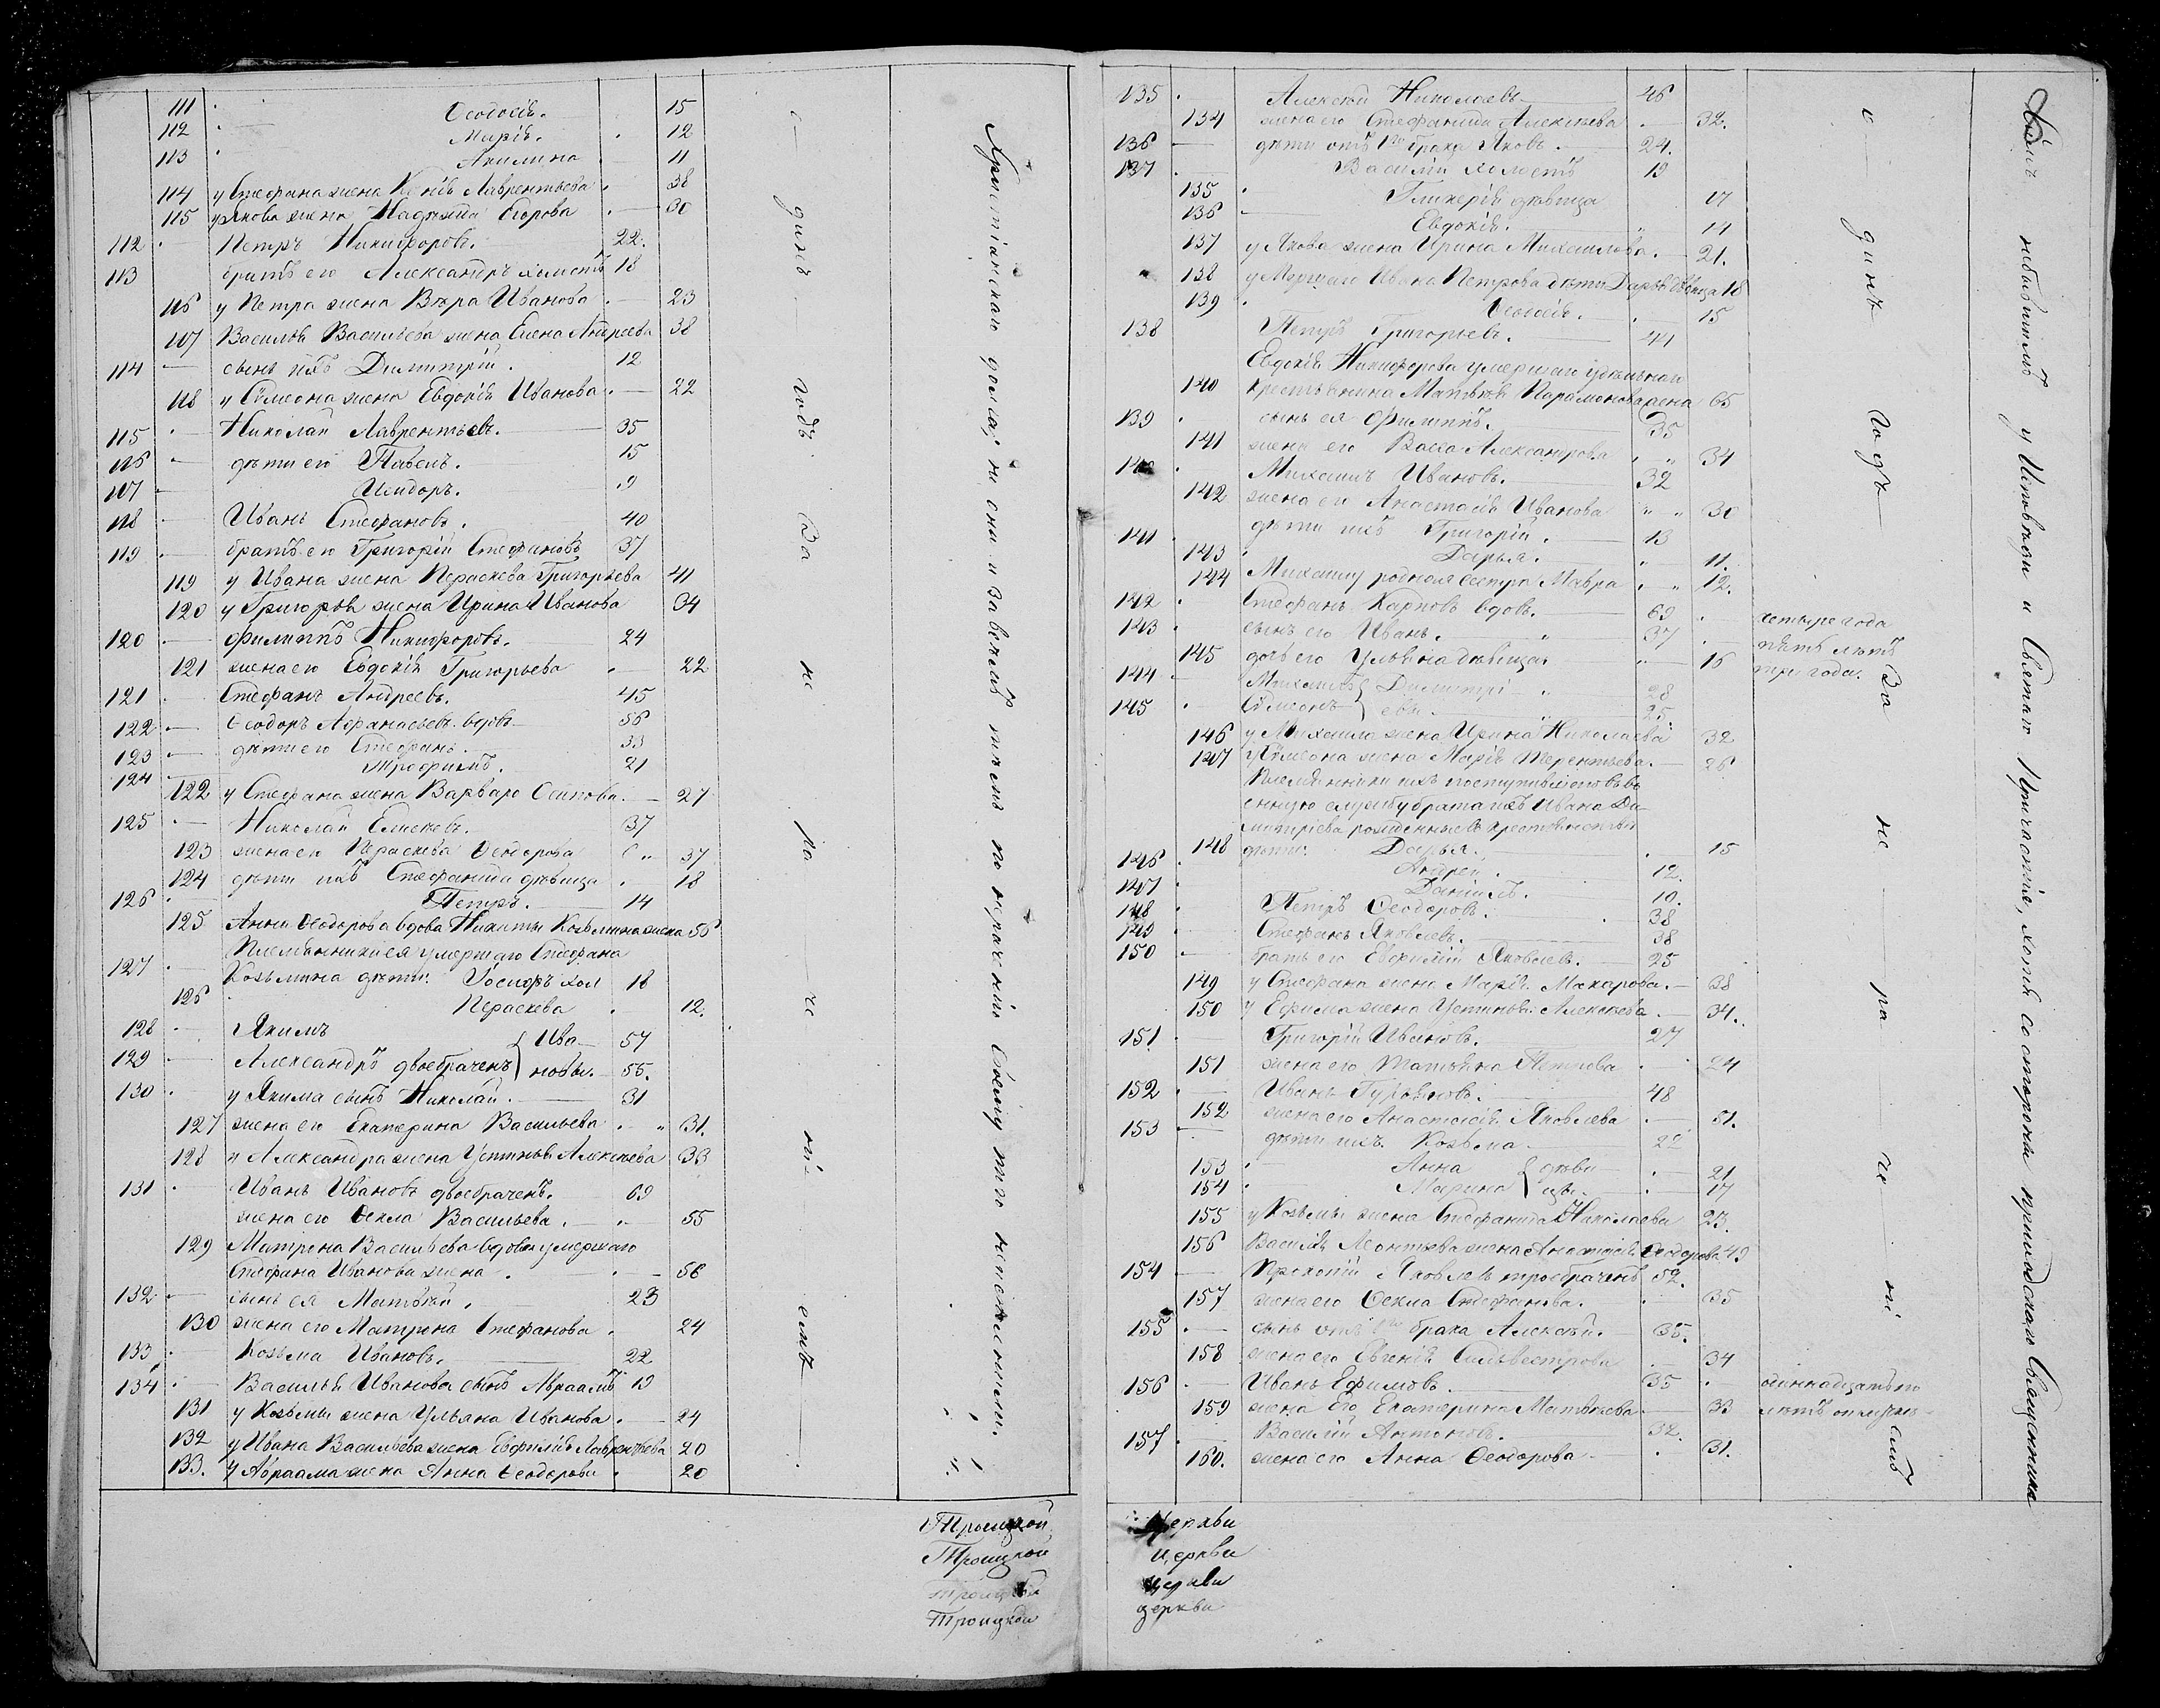 111 Ѳеодосія. 15
112 Марія. 12
113 Акилина 11
114 у Стефана жена Ксенія Лаврентьева 38
115 у Якова жена Надежда Егорова 30
112 Петръ Никифоровъ. 22.
113 братъ его Александръ холостъ 18
116 у Петра жена Вѣра Иванова 23
117 Василья Васильева жена Елена Андреева 38
114 сынъ ихъ Димитрій. 12
118 у Сѵмеона жена Евдокія Иванова 22
115 Николай Лаврентьевъ. 35
116 дѣти его Павелъ. 15
117 Исидоръ. 9
118 Иванъ Стефановъ. 40
119 братъ его Григорій Стефановъ 37
119 у Ивана жена Параскева Григорьева 41
120 у Григорія жена Ирина Иванова 34
120 Филиппъ Никифоровъ. 24
121 жена его Евдокія Григорьева 22
121 Стефанъ Андреевъ. 45
122 Ѳеодоръ Афанасьевъ вдовъ 56
123 дѣти его Стефанъ. 33
124 Трофимъ. 21
122 у Стефана жена Варвара Осипова. 27
125 Николай Елисеевъ. 37
123 жена его Параскева Ѳеодорова 37
124 дѣти ихъ Стефанида дѣвица 18
126 Петръ. 14
125 Анна Ѳеодорова вдова Никиты Козьмина жена 56
Племянники ея умершаго Стефана
127 Козьмина дѣти: Іосифъ хол 18
126 Параскева 12.
128 Якимъ { Ива- 57
129 Александръ двоебраченъ } новы. 55.
130 у Якима сынъ Николай. 31
127 жена его Екатерина Васильева 31.
128 у Александра жена Устинья Алексѣева 33
131 Иванъ Ивановъ двоебраченъ. 69
жена его Ѳекла Васильева. 55
129 Матрона Васильева вдова умершаго
Стефана Иванова жена 56
132 сынъ ея Матвѣй. 23
130 жена его Матрона Стефанова 24
133 Козьма Ивановъ. 22
134 Василья Иванова сынъ Авраамъ 19
131 у Козьмы жена Ульяна Иванова. 24
132 у Ивана Васильева жена Евфимія Лаврентьева 20
133. у Авраама жена Анна Ѳеодорова 20
одинъ годъ. За не ра че ні емъ
Христіанскаго долга; но они извѣчаемъ по нераченію своему того неисполнили.
Троицкой
Троицкой
Троицкой
Троицкой
135 Алексѣй Николаевъ 46
134 жена его Стефанида Алексѣева 32.
136 дѣти отъ 1го брака Яковъ. 24.
137 Василій холостъ 19
135 Гликерія дѣвица 17
136 Евдокія. 14
137 у Якова жена Ирина Михайлова. 21.
138 у Мершаго Ивана Петрова дѣти Дарья дѣвица 18
139 Ѳеодосія. 15
138 Петръ Григорьевъ. 44
Евдокія Никифорова умершаго удѣльнаго
140 крестьянина Матвѣя Парамонова жена 65
139 сынъ ея Филиппъ. 35
141 жена его Васса Александрова 34
140 Михаилъ Ивановъ. 32
142 жена его Анастасія Иванова 30
141 дѣти ихъ Григорій. 13
143 Дарья. 11.
144 Михаилу родная сестра Мавра 12.
142 Стефанъ Карповъ вдовъ. 69 четыре года
143 сынъ его Иванъ. 37 пять лѣтъ
145 дочь его Ульяна дѣвица 16 три года.
144 Михаилъ { Димитрі 28
145 Сѵмеонъ } евы. 25.
146 у Михаила жена Ирина Николаева 32
147 у Сѵмеона жена Марія Терентьева. 26
Племянники ихъ поступившаго въ во
енную службу брата ихъ Ивана Ди-
митріева рожденные въ крестьянствѣ
148 дѣти: Дарья. 15
146 Андрей. 12.
147 Даніилъ. 10.
148 Петръ Ѳеодоровъ. 38
149 Стефанъ Яковлевъ. 38
150 братъ его Евфимій Яковлевъ. 25
149 у Стефана жена Марія Макарова. 38
150 у Ефима жена Устинья Алексѣева 34.
151 Григорій Ивановъ. 27
151 жена его Татьяна Петрова 24
152 Иванъ Гурьяновъ. 48
152 жена его Анастасія Яковлева 51.
153 дѣти ихъ. Козьма
153 Анна { дѣви 21
154 Марина } цы. 17
155 у Козьмы жена Стефанида Николаева 23.
156 Василія Леонтьева жена Анастасія Ѳеодорова 49
154 Прокопій Яковлевъ троебраченъ 52.
157 жена его Ѳекла Стефанова. 35
155 сынъ отъ 1го брака Алексѣй. 35.
158 жена его Евгенія Сильвестрова 34
156 Иванъ Ефимовъ. 35 одиннадцать
159 жена его Екатерина Матвѣева 33 лѣтъ
157 Василій Антоновъ. 32.
160. жена его Анна Ѳеодорова 31.
одинъ годъ За не ра че ні емъ
небывшимъ у Исповѣди и Святаго Причастія, хотя со стороны приходскаго Священника
Церкви
церкви
церкви
церкви